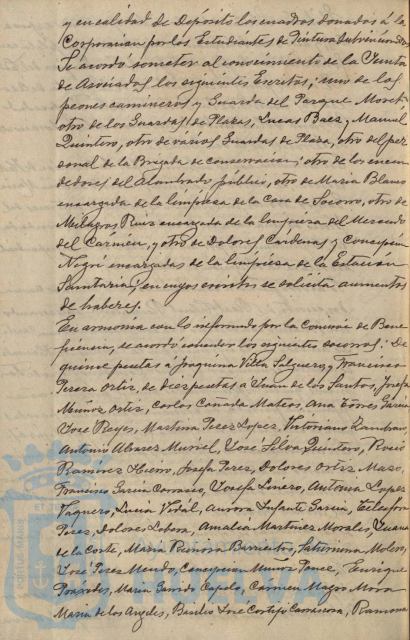 y en calidad de Depósito los cuadros donados á la
Corporación por los Estudiantes de Pintura
Se acordó someter al conocimiento de la Junta
de Asociados los siguientes Escritos; uno de los
peones camineros y Guarda del Parque Moret;
otro de los Guardas de Plazas, Lucas Baez y Manuel
Quintero, otro de varios Guardas de Plaza, otro del per
sonal de la Brigada de conservacion; otro de los encen
dedores del Alumbrado público, otro de Maria Blanco
encargada de la limpiesa de la Casa de Socorro, otro de
Milagros Ruiz encargada de la limpiesa del Mercado
del Cármen, y otro de Dolores Cárdenas y Concepcion
Negri encargadas de la limpiesa de la Estación
Sanitaria; en cuyos escritos se solicita aumentos
de haberes.
En armonia con lo informado por la Comisión de Bene
ficencia, se acordó conceder los siguientes socorros: De
quince pesetas á Joaquina Villa Salguero, y Francisca
Perera Ortiz, de diez pesetas á Juan de los Santos, Josefa
Muñoz Ortiz, Carlos Cañada Mateos, Ana Torres Garcia
José Reyes, Martina Perez Lopez, Victoriano Zambrano,
Antonio Alvarez Muriel, José Silva Quintero, Rocio
Ramirez, Josefa Perez, Dolores Ortiz Mazo,
Francisco Garcia Carrasco, Josefa Liniero, Antonia Lopez
Vaquero, Lucia Vidal, Aurora Infante Garcia, Telesfora
Perez, Dolores Lobera, Amalia Martinez Morales, Juana
de la Corte, Maria Barrientos, Saturnina Molero,
José Perez Mendo, Concepcion Munoz Ponce, Enrique
Maria Garrido Capelo, Cármen Mazo Mora
Maria de los Angeles, Basilio José Cortijo Carrasco, Ramona